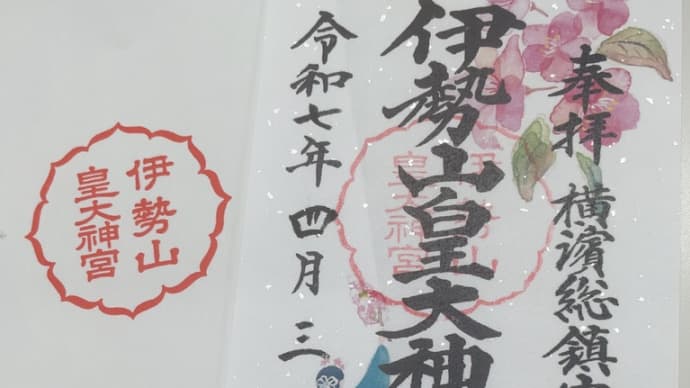 奉拝 横濱総鎮
伊勢山皇大神
令和七年四月三
伊勢山
皇大神宮
伊勢山
皇大神宮